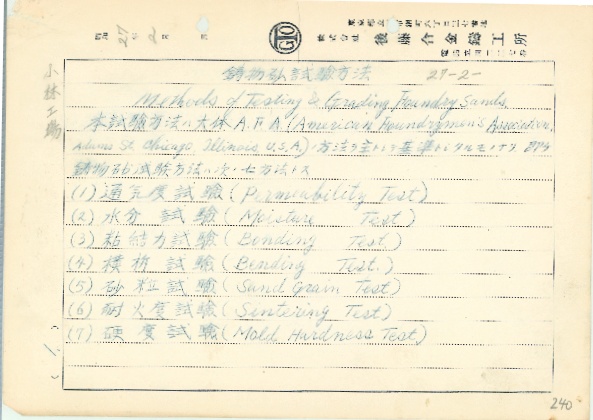 昭和27年2月 日
GTO
株式会社 後藤合金鋳工所
小林工場
鋳物砂試験方法 27-2-
Methods of Testing & Grading Foundry Sands.
本試験方法ハ大体A.F.A(American Foundrymen's Association,
Adams St. Chicago, Illinois U.S.A.)ノ方法ヲ主トシテ基準トシタルモノナリ
鋳物砂試験方法ハ次ノ七方法トス
(1) 通気度試験(Permeability Test)
(2) 水分 試験(Moisture Test)
(3) 粘結力試験(Bonding Test.)
(4) 横折 試験(Bending Test.)
(5) 砂粒試験(Sand Grain Test)
(6) 耐火度試験(Sintering Test)
(7) 硬度試験(Mold Hardness Test)
(1.)
240